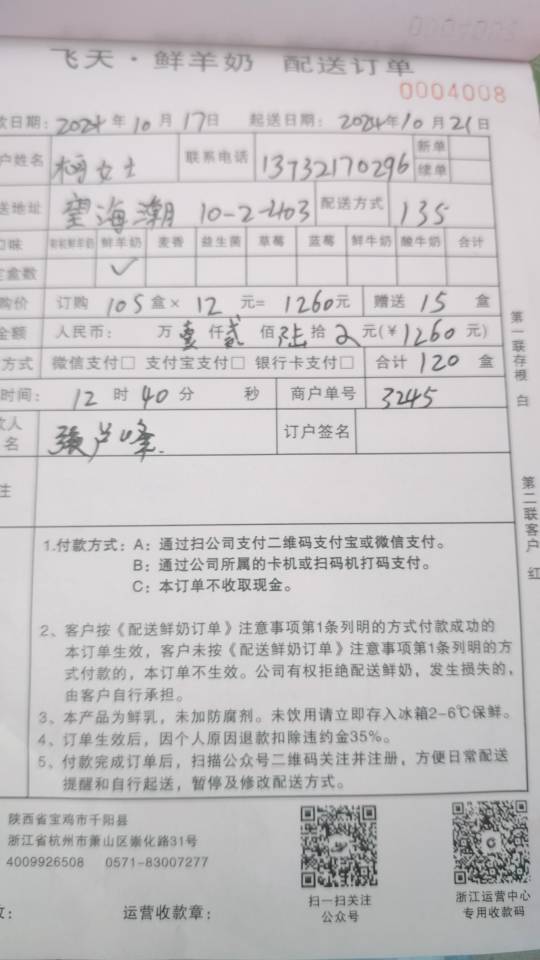 飞天·鲜羊奶 配送订单
0004008
款日期: 2024年10月17日 起送日期: 2024年10月21日
户姓名 柯女士 联系电话 13732170296 新单
续单
送地址 望海潮 10-2-403 配送方式 135
口味 鲜羊奶 麦香 益生菌 草莓 蓝莓 鲜牛奶 酸牛奶 合计
定盒数 ✓
购价 订购 105 盒× 12 元= 1260元 赠送 15 盒
金额 人民币: 万 壹 仟 贰 佰 陆 拾 元(¥1260元)
方式 微信支付□ 支付宝支付□ 银行卡支付□ 合计 120 盒
时间: 12 时 40 分 秒 商户单号 3245
款人
名 张 峰 订户签名
注
第一联存根 白
第二联客户 红
1.付款方式: A: 通过扫公司支付二维码支付宝或微信支付。
B: 通过公司所属的卡机或扫码机打码支付。
C: 本订单不收取现金。
2、客户按《配送鲜奶订单》注意事项第1条列明的方式付款成功的
本订单生效，客户未按《配送鲜奶订单》注意事项第1条列明的方
式付款的，本订单不生效。公司有权拒绝配送鲜奶，发生损失的，
由客户自行承担。
3、本产品为鲜乳，未加防腐剂。未饮用请立即存入冰箱2-6℃保鲜。
4、订单生效后，因个人原因退款扣除违约金35%。
5、付款完成订单后，扫描公众号二维码关注并注册，方便日常配送
提醒和自行起送，暂停及修改配送方式。
陕西省宝鸡市千阳县
浙江省杭州市萧山区崇化路31号
4009926508 0571-83007277
扫一扫关注
公众号
浙江运营中心
专用收款码
运营收款章: